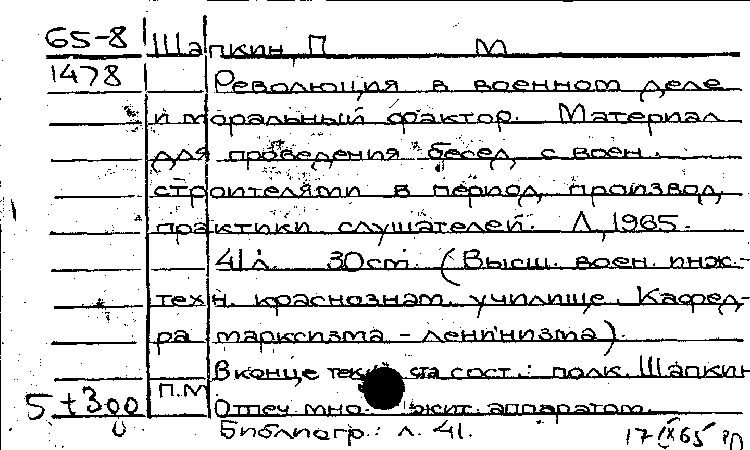 65-8 Шапкин, П М
1478 Революция в военном деле
и моральный фактор. Материал
для проведения бесед с воен.
строителями в период производ.
практики слушателей. Л, 1965.
41 л. 30 cm. (Высш. воен. инж.-
техн. краснознам. училище. Кафед-
ра марксизма - ленинизма).
В конце текста сост.: полк. Шапкин
П.М
5+300 Отпеч. множит. аппаратом.
Библиогр.: л. 41. 17 IX 65